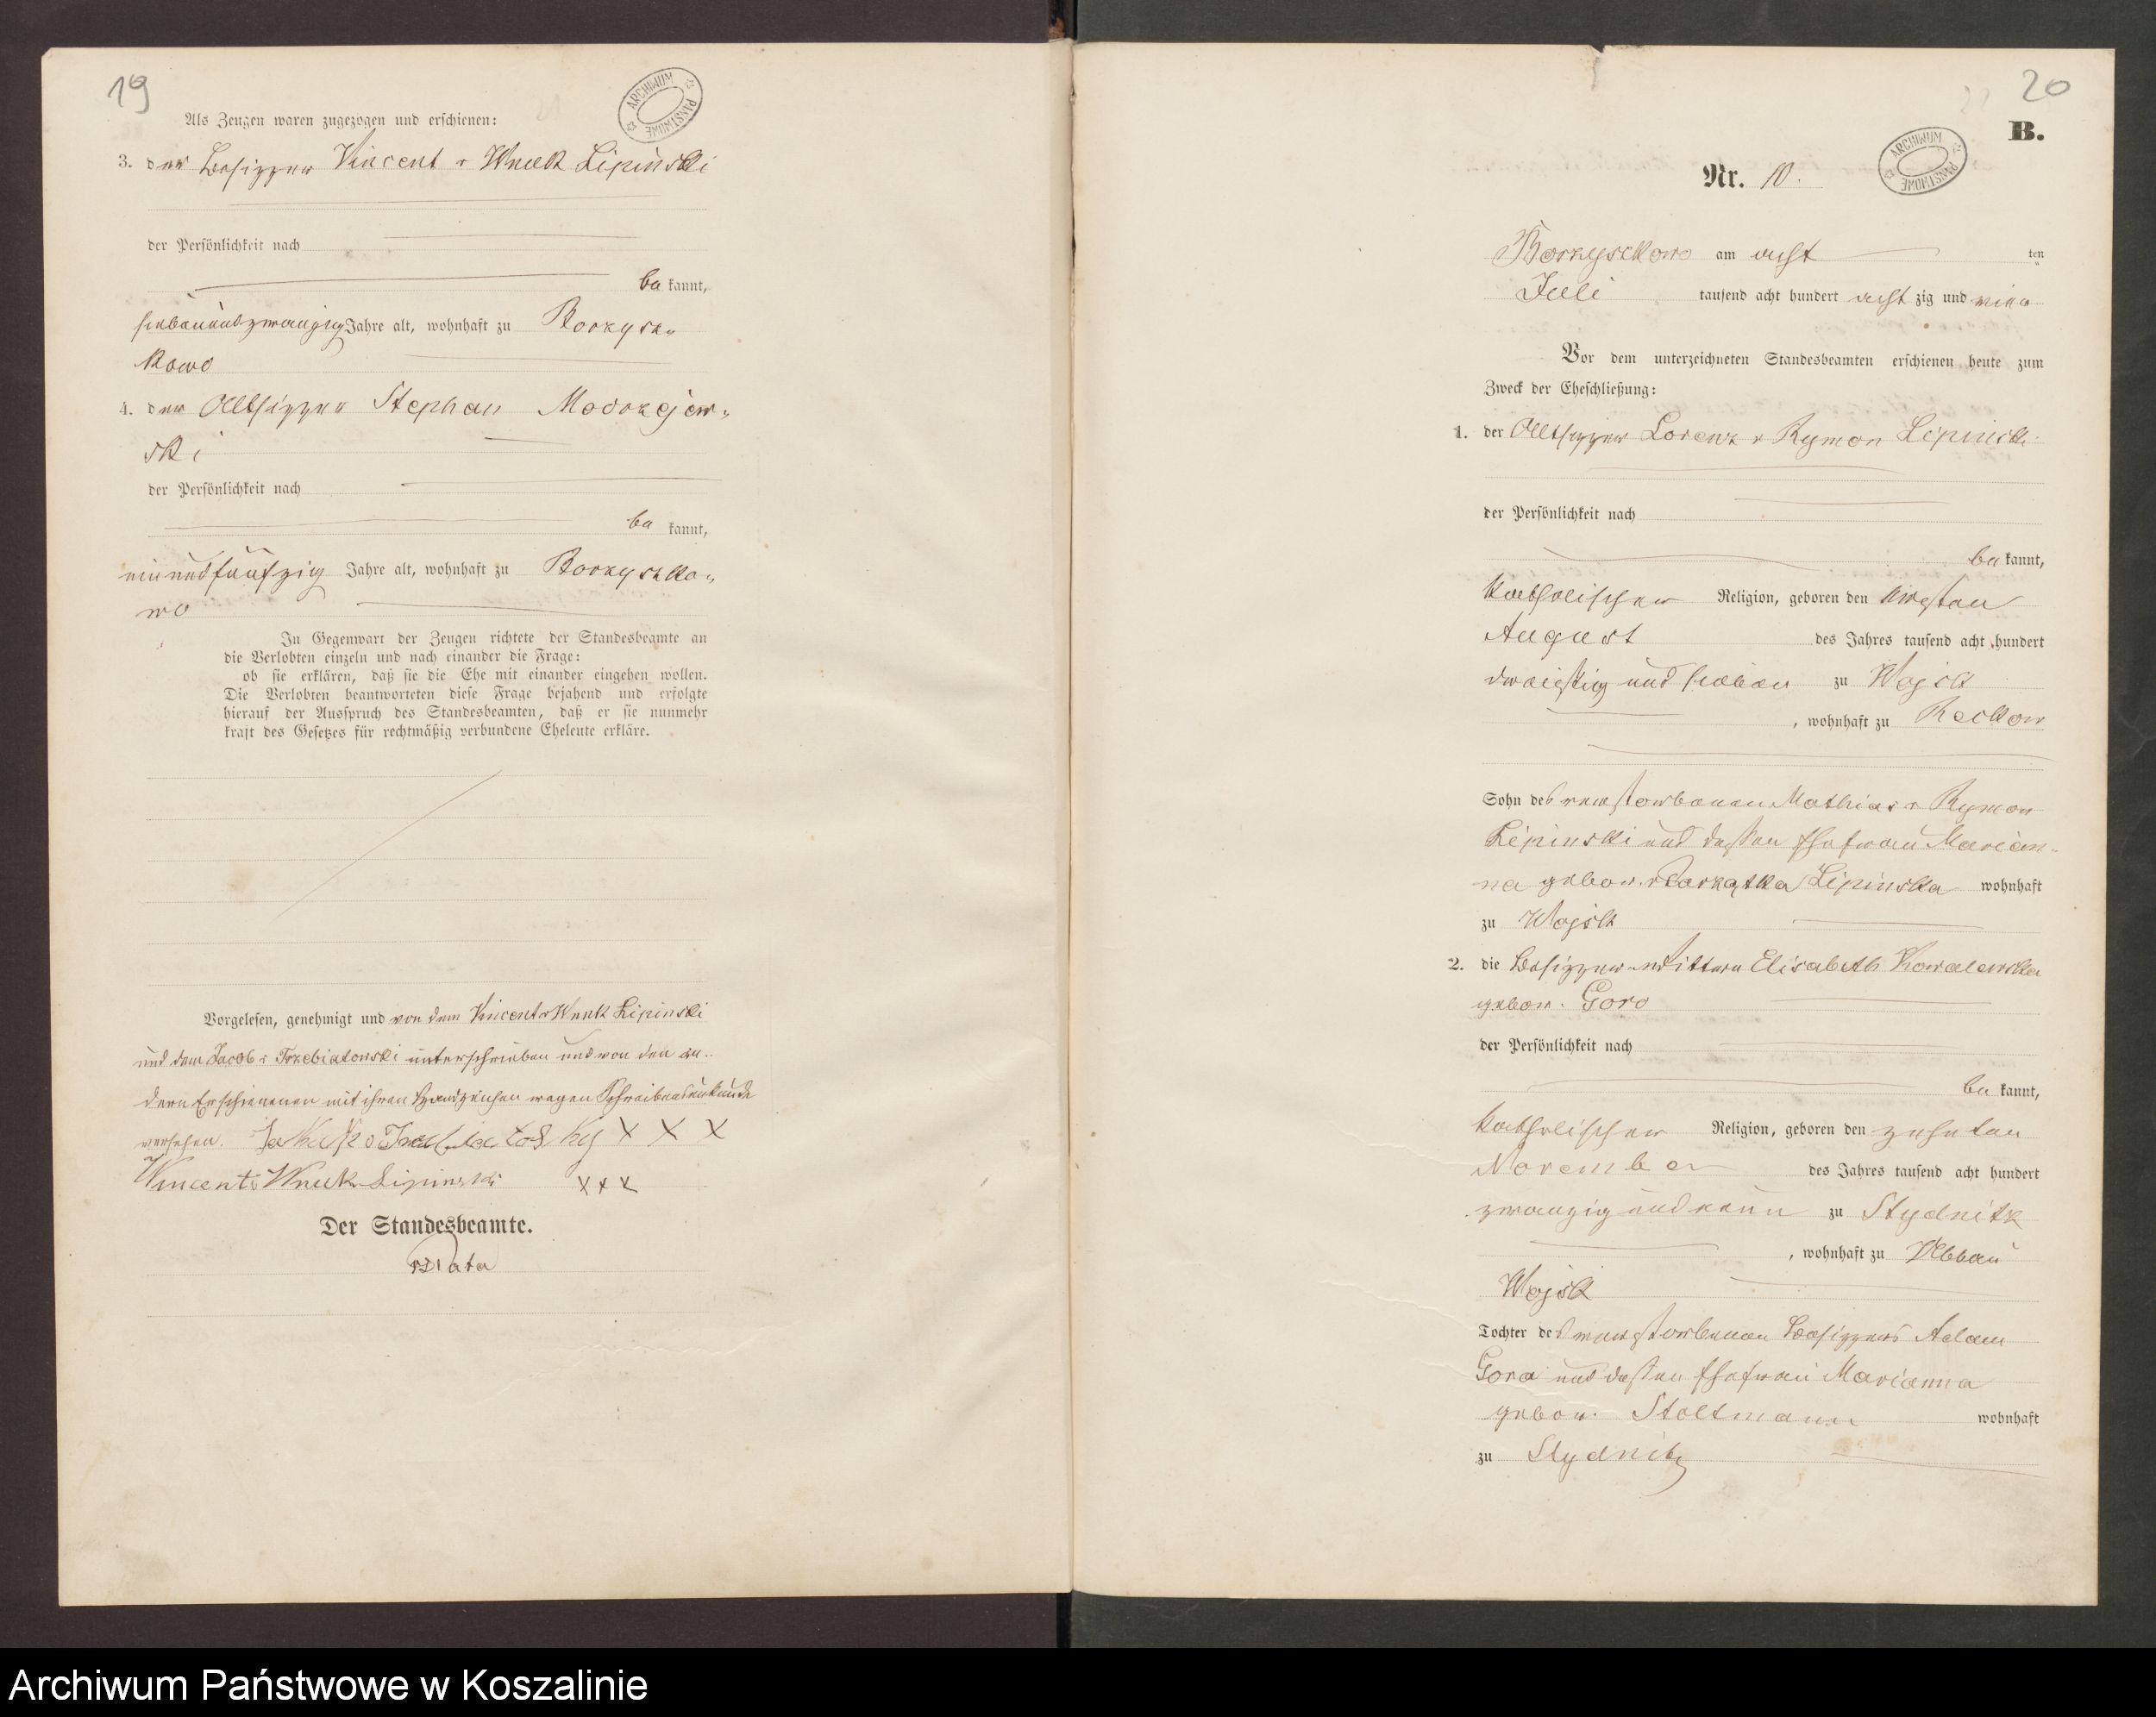 19
ARCHIWUM PAŃSTWOWE
Als Zeugen waren zugezogen und erschienen:
3. der Besitzer Vincent v Wnuk Lipinski
der Persönlichkeit nach
be kannt,
siebenundzwanzig Jahre alt, wohnhaft zu Borzysz-
kowo
4. der Altsitzer Stephan Modrzejew-
ski
der Persönlichkeit nach
be kannt,
einundfünfzig Jahre alt, wohnhaft zu Borzyszko-
wo
In Gegenwart der Zeugen richtete der Standesbeamte an
die Verlobten einzeln und nach einander die Frage:
ob sie erklären, daß sie die Ehe mit einander eingehen wollen.
Die Verlobten beantworteten diese Frage bejahend und erfolgte
hierauf der Ausspruch des Standesbeamten, daß er sie nunmehr
kraft des Gesetzes für rechtmäßig verbundene Eheleute erkläre.
Vorgelesen, genehmigt und von dem Vincent v Wnuk Lipinski
und dem Jacob v Trzebiatowski unterschrieben und von den an-
dern Erschienenen mit ihren Handzeichen wegen Schreibensunkunde
versehen. X X X
Wincenti Wnuk Lipinski X X X
Der Standesbeamte.
20
B.
ARCHIWUM PAŃSTWOWE
Nr. 10.
Borzyszkowo am acht ten
Juli tausend acht hundert acht zig und vier
Vor dem unterzeichneten Standesbeamten erschienen heute zum
Zweck der Eheschließung:
1. der Altsitzer Lorenz v Rymon Lipinski
der Persönlichkeit nach
be kannt,
katholischer Religion, geboren den
August des Jahres tausend acht hundert
dreißig und sieben zu Wojsk
, wohnhaft zu Reckow
Sohn des verstorbenen Mathias v Rymon
Lipinski und dessen Ehefrau Marian-
na gebor. Lipinska wohnhaft
zu Wojsk
2. die Besitzer-Wittwe Elisabeth Kowalewska
gebor. Gora
der Persönlichkeit nach
be kannt,
katholischer Religion, geboren den zehnten
November des Jahres tausend acht hundert
zwanzig und neun zu Stydnitz
, wohnhaft zu Abbau
Wojsk
Tochter des verstorbenen Besitzers Adam
Gora und dessen Ehefrau Marianna
gebor. Stoltmann wohnhaft
zu Stydnitz
Archiwum Państwowe w Koszalinie